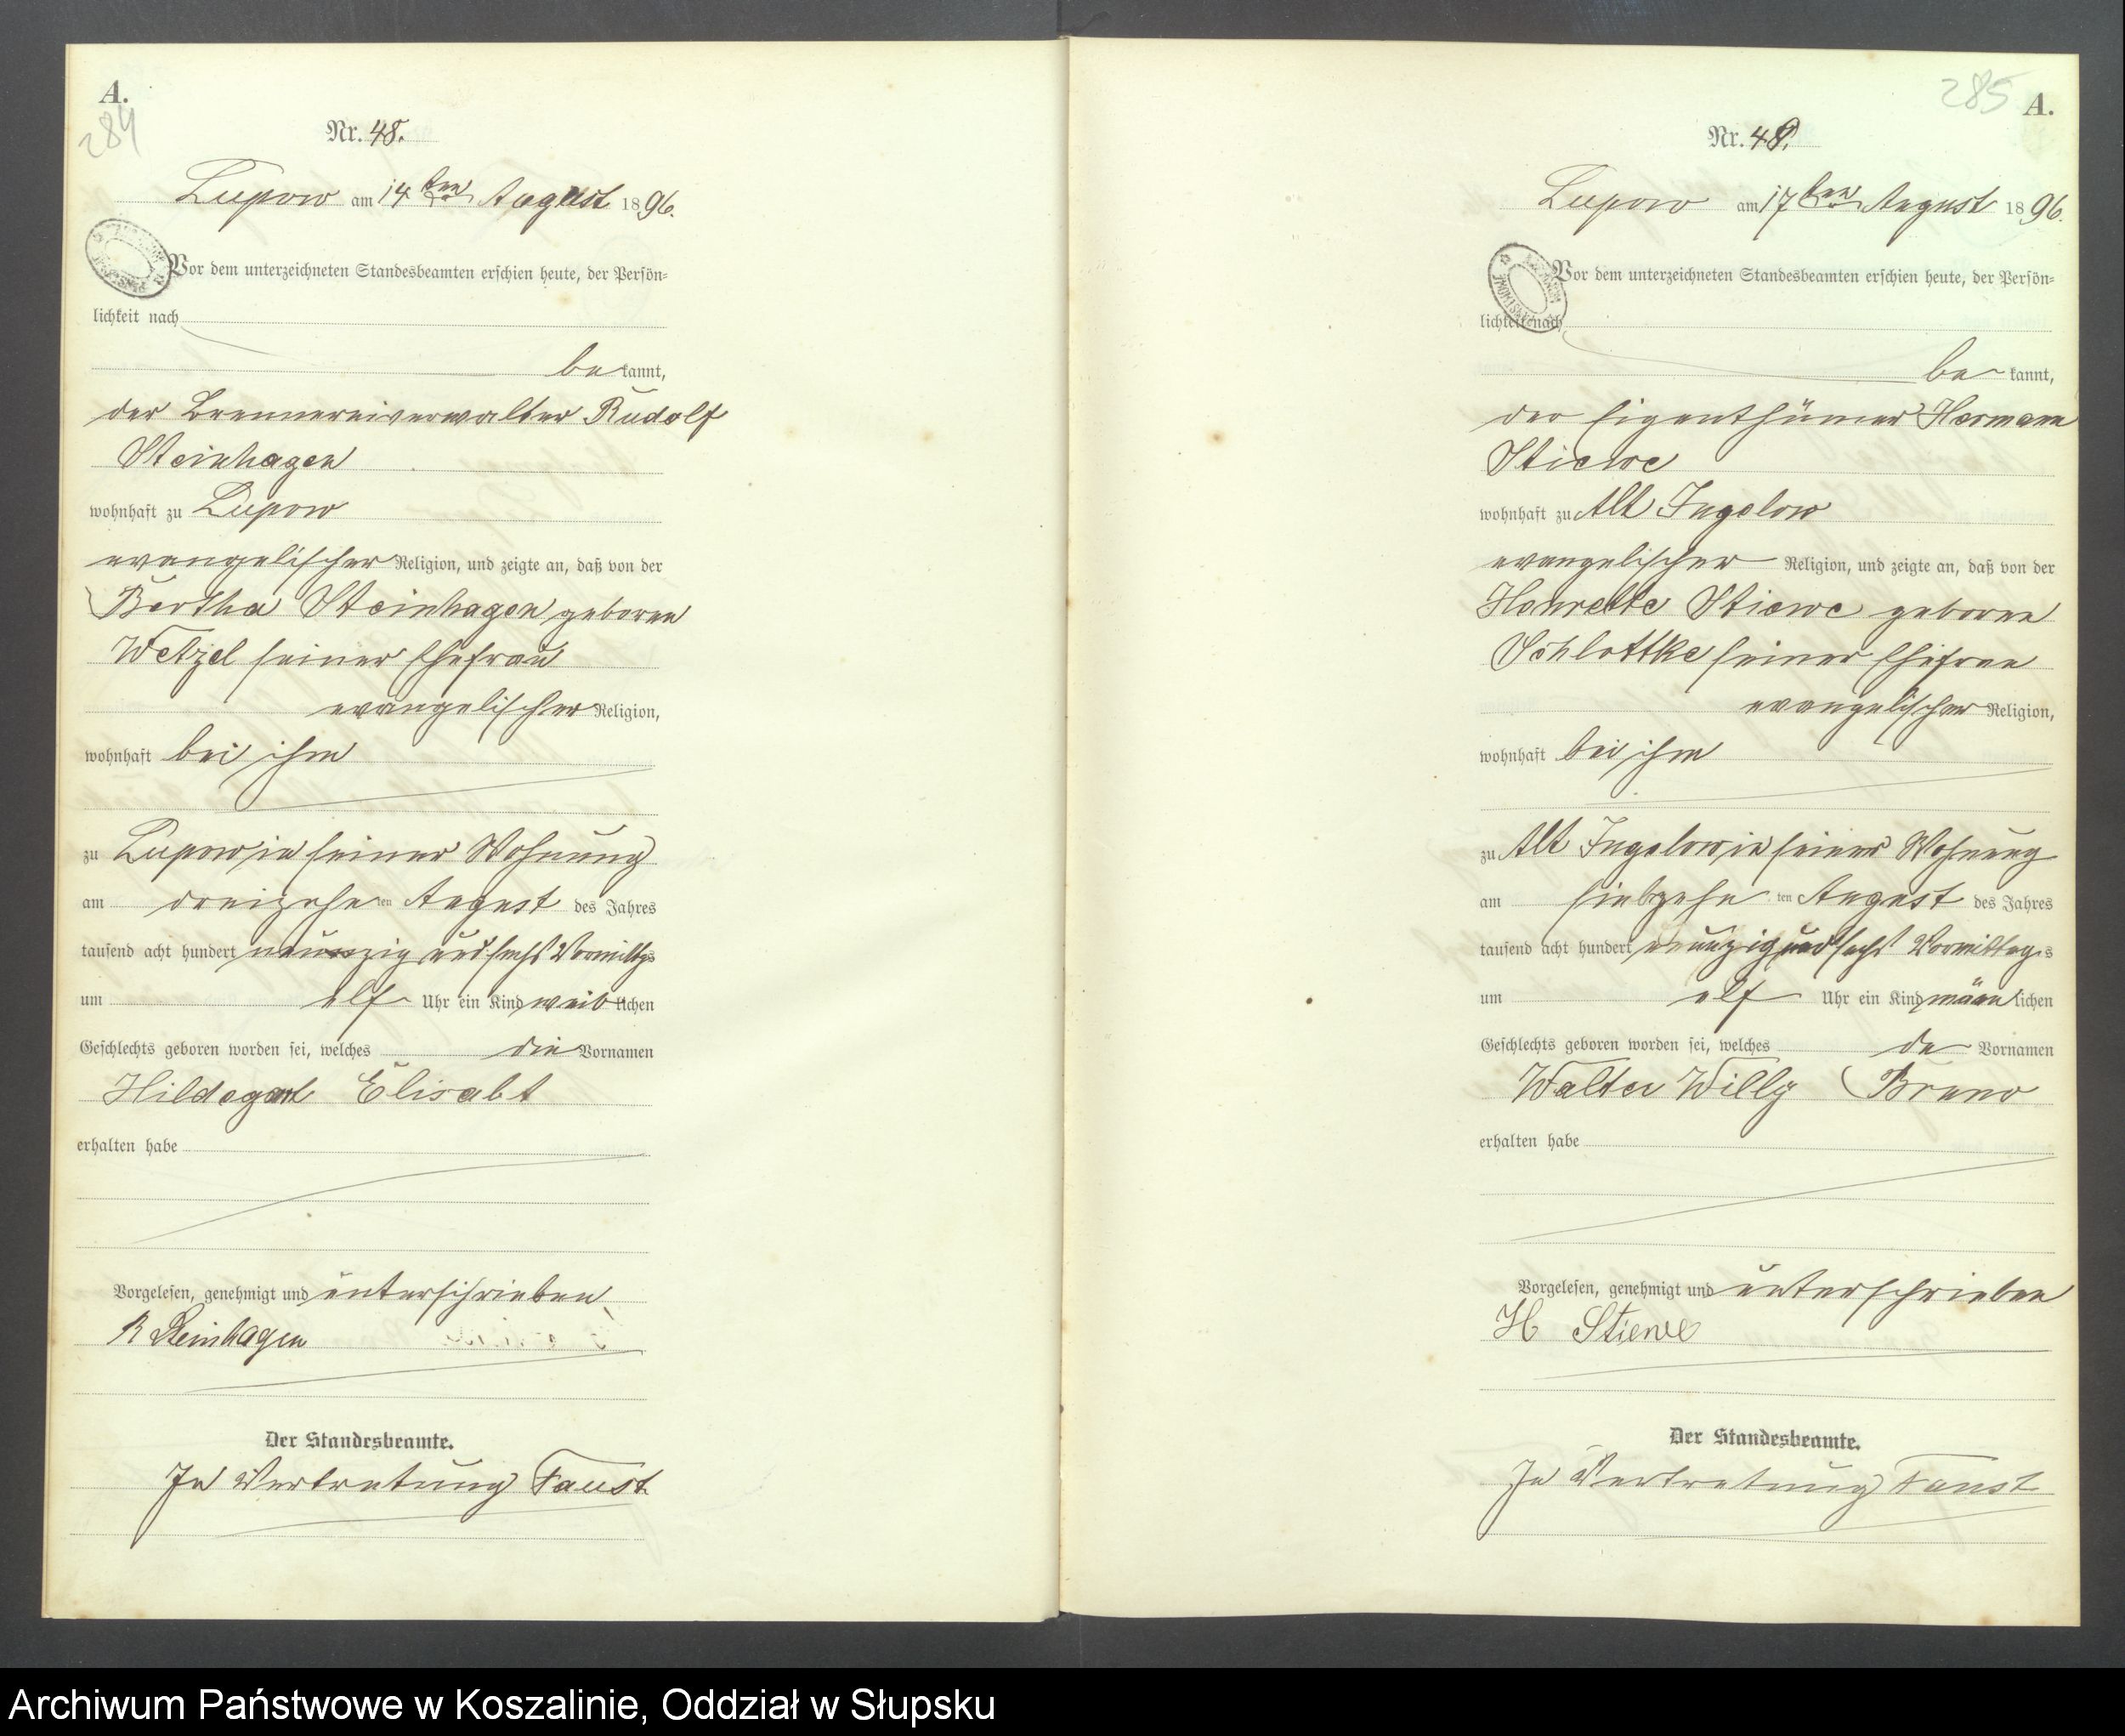 A.
284
Nr. 48.
Lupow am 14ten August 1896.
Vor dem unterzeichneten Standesbeamten erschien heute, der Persön-
lichkeit nach
bekannt,
der Brennereiverwalter Rudolf
Steinhagen
wohnhaft zu Lupow
evangelischer Religion, und zeigte an, daß von der
Bertha Steinhagen geborene
Wetzel seiner Ehefrau
evangelischer Religion,
wohnhaft bei ihm
zu Lupow in seiner Wohnung
am dreizehnten August des Jahres
tausend acht hundert neunzig und sechs Vormittags
um elf Uhr ein Kind weiblichen
Geschlechts geboren worden sei, welches die Vornamen
Hildegard Elisabt
erhalten habe
Vorgelesen, genehmigt und unterschrieben
R Steinhagen
Der Standesbeamte.
In Vertretung Faust
285
A.
Nr. 49.
Lupow am 17ten August 1896.
Vor dem unterzeichneten Standesbeamten erschien heute, der Persön-
lichkeit nach
bekannt,
der Eigenthümer Hermann
Stiewe
wohnhaft zu Alt Jugelow
evangelischer Religion, und zeigte an, daß von der
Henrette Stiewe geborene
Schlottke seiner Ehefrau
evangelischer Religion,
wohnhaft bei ihm
zu Alt Jugelow in seiner Wohnung
am siebzehnten August des Jahres
tausend acht hundert neunzig und sechs Vormittags
um elf Uhr ein Kind männlichen
Geschlechts geboren worden sei, welches de Vornamen
Walter Willy Bruno
erhalten habe
Vorgelesen, genehmigt und unterschrieben
H Stiewe
Der Standesbeamte.
In Vertretung Faust
Archiwum Państwowe w Koszalinie, Oddział w Słupsku